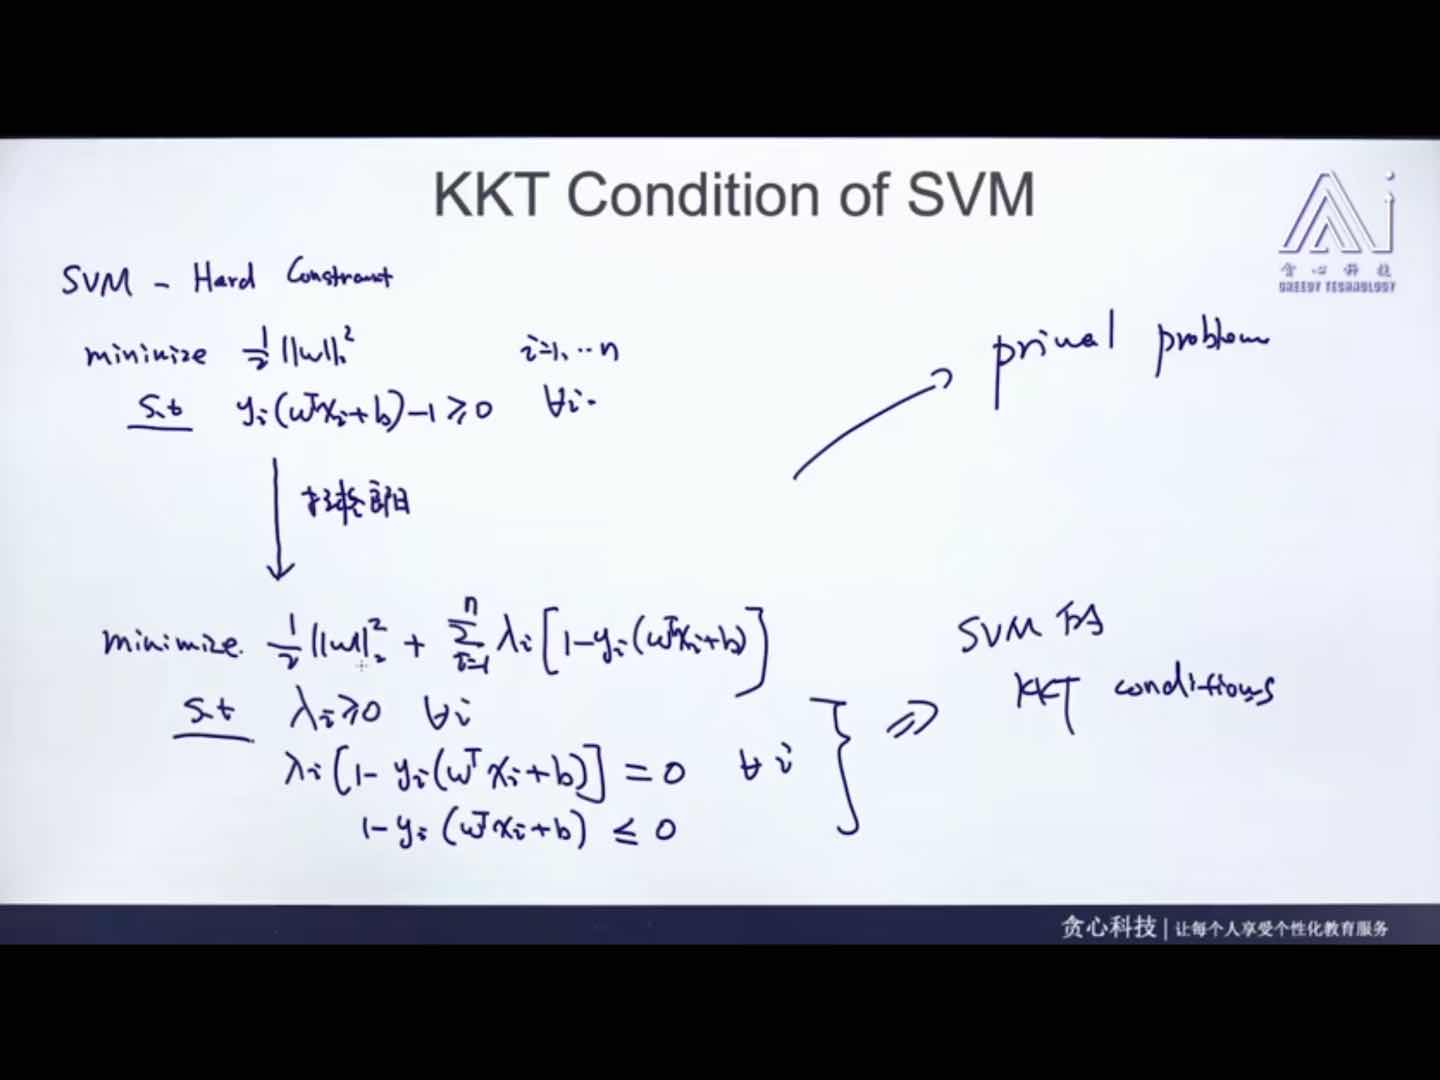 KKT Condition of SVM
贪心科技
GREEDY TECHNOLOGY
SVM - Hard Constraint
minimize 1/2 ||w||₂² i=1, ... n
s.t yᵢ(wᵀxᵢ+b)-1 ≥ 0 ∀i.
primal problem
拉格朗日
minimize. 1/2 ||w||₂² + Σᵢ₌₁ⁿ λᵢ[1-yᵢ(wᵀxᵢ+b)]
s.t λᵢ≥0 ∀i
λᵢ[1-yᵢ(wᵀxᵢ+b)] = 0 ∀i
1-yᵢ(wᵀxᵢ+b) ≤ 0
SVM 的
KKT conditions
贪心科技 | 让每个人享受个性化教育服务